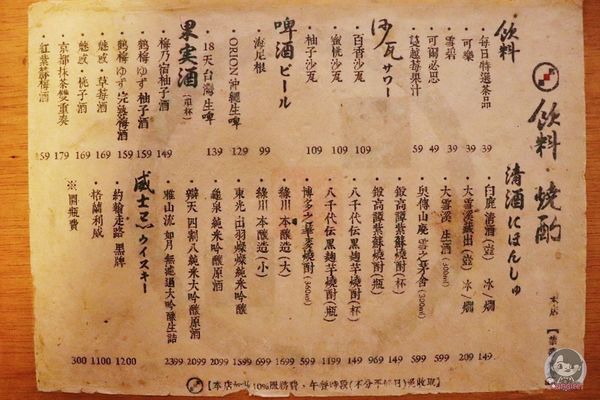 飲料・燒酌
飲料
・每日特選茶品 39
・可樂 39
・雪碧 39
・可爾必思 49
・這越莓果汁 59
沙瓦サワー
・百香沙瓦 109
・蜜桃沙瓦 109
・柚子沙瓦 109
啤酒ビール
・海尼根 99
・ORION 沖繩生啤 129
・18天台灣生啤 139
果実酒（單杯）
・梅乃宿柚子酒 149
・鶴梅ゆず 柚子酒 159
・鶴梅ゆず 完熟梅酒 159
・魅惑・草莓酒 169
・魅惑・桃子酒 169
・京都抹茶雙重奏 179
・紅紫蘇梅酒 159
清酒にほんしゅ
・白鹿清酒(壹) 冰/燗 149
・大雪溪藏出(壹) 冰/燗 209
・大雪溪 生酒 (300ml) 599
・與傳山廢 雪之茅舍 (300ml) 599
・鍛高譚紫蘇燒酎（杯） 149
・鍛高譚紫蘇燒酎（瓶） 969
・八千代伝黒麹芋燒酎（杯） 149
・八千代伝黒麹芋燒酎（瓶） 1199
・博多之華麥燒酎 (360ml) 599
・綠川 本釀造（大） 1699
・綠川 本釀造（小） 699
・東光 出羽燦燦純米吟釀 1599
・龜泉 純米吟釀原酒 2099
・辯天 四割八純米大吟釀原酒 2099
・雅山流 如月 無濾過大吟釀生詰 2399
威士忌ウイスキー
・約翰走路 黑牌 1200
・格蘭利威 1100
※開瓶費 300
【本店加收10%服務費、午餐時段(不分平假日)免收取】